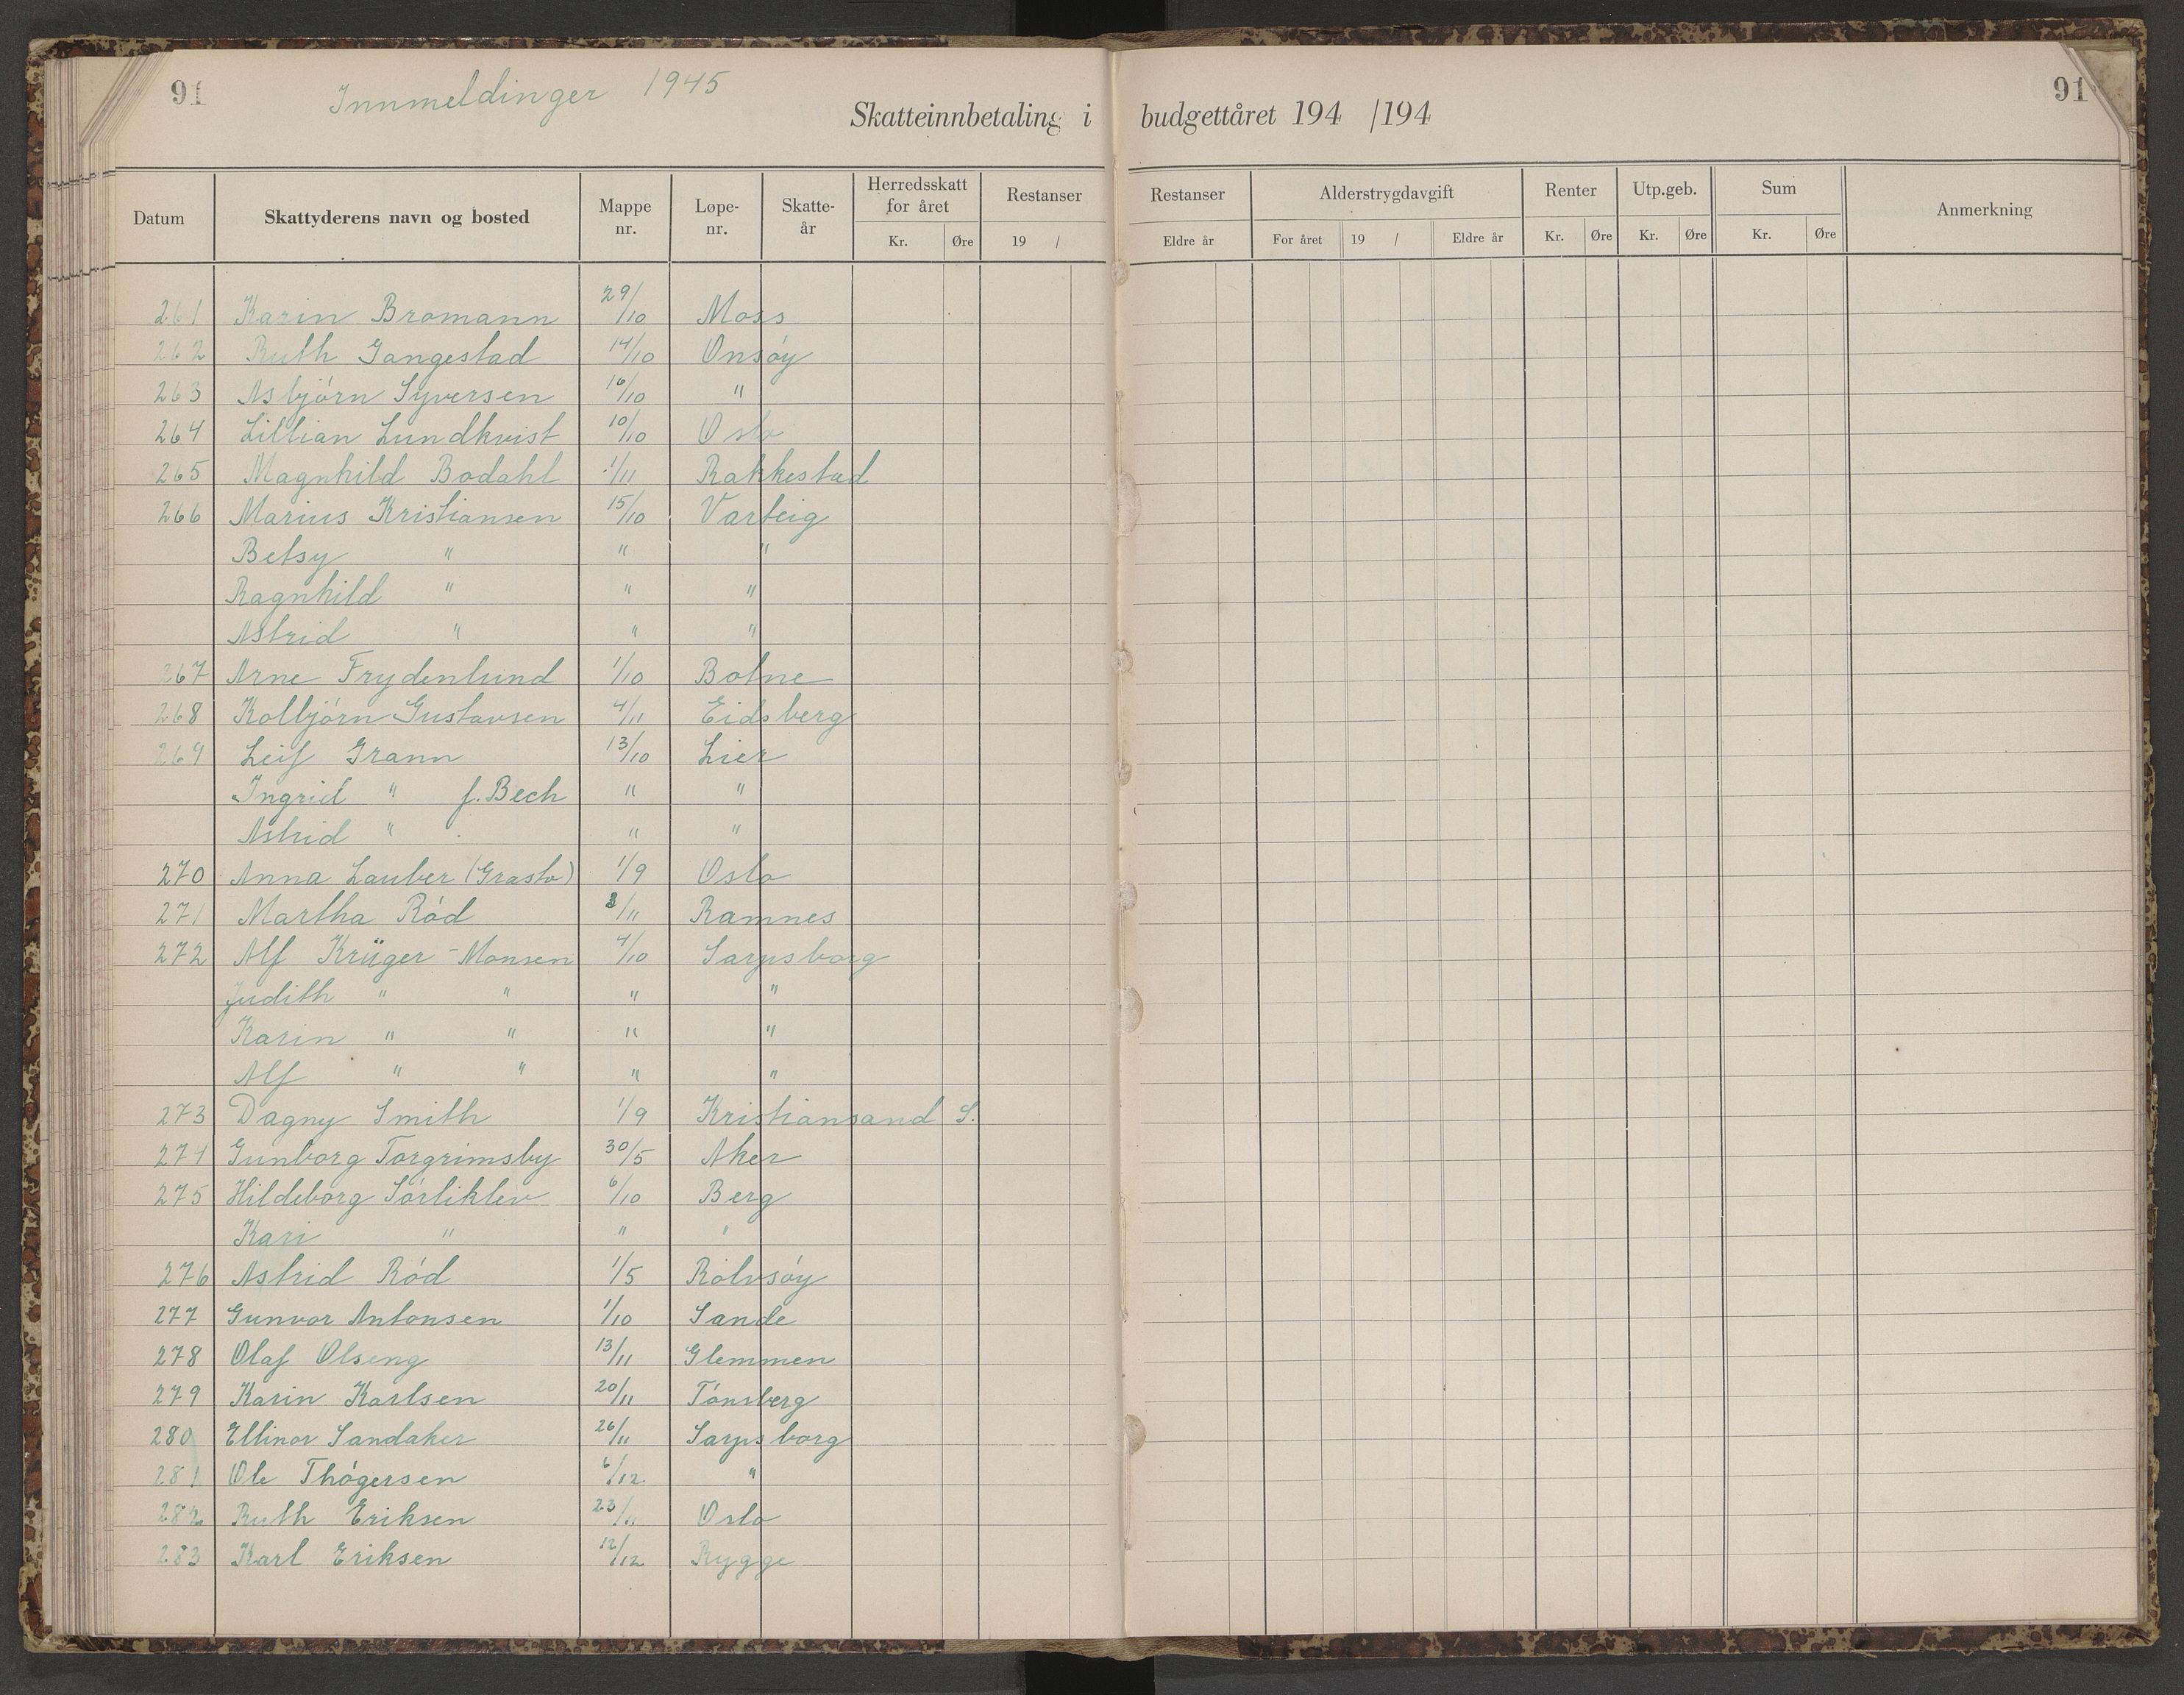 91 Innmeldinger 1945 91
Skatteinnbetaling i budgettåret 194 /194
Datum Skattyderens navn og bosted Mappe nr. Løpe-nr. Skatte-år Herredsskatt for året Kr. Øre Restanser 19 / Restanser Eldre år Alderstrygdavgift For året 19 / Eldre år Renter Kr. Øre Utp.geb. Kr. Øre Sum Kr. Øre Anmerkning
261 Karin Bromann 29/10 Moss
262 Ruth Gangestad 14/10 Onsøy
263 Asbjørn Syversen 16/10 "
264 Lillian Lundkvist 10/10 Oslo
265 Magnhild Bodahl 1/11 Rakkestad
266 Marius Kristiansen 15/10 Varteig
Betsy " " "
Ragnhild " " "
Astrid " " "
267 Arne Frydenlund 1/10 Botne
268 Kolbjørn Gustavsen 4/11 Eidsberg
269 Leif Grann 13/10 Lier
Ingrid " f. Bech " "
Astrid " " "
270 Anna Lauber (Grasto) 1/9 Oslo
271 Martha Rød 3/11 Ramnes
272 Alf Krüger-Monsen 4/10 Sarpsborg
Judith " " " "
Karin " " " "
Alf " " " "
273 Dagny Smith 1/9 Kristiansand S.
274 Gunborg Torgrimsby 30/5 Aker
275 Hildeborg Sørliklev 6/10 Berg
Kari " " "
276 Astrid Rød 1/5 Rolvsøy
277 Gunvor Antonsen 1/10 Sande
278 Olaf Olseng 13/11 Glemmen
279 Karin Karlsen 20/11 Tønsberg
280 Ellinor Sandaker 26/11 Sarpsborg
281 Ole Thøgersen 6/12 "
282 Ruth Eriksen 23/11 Oslo
283 Karl Eriksen 12/12 Rygge